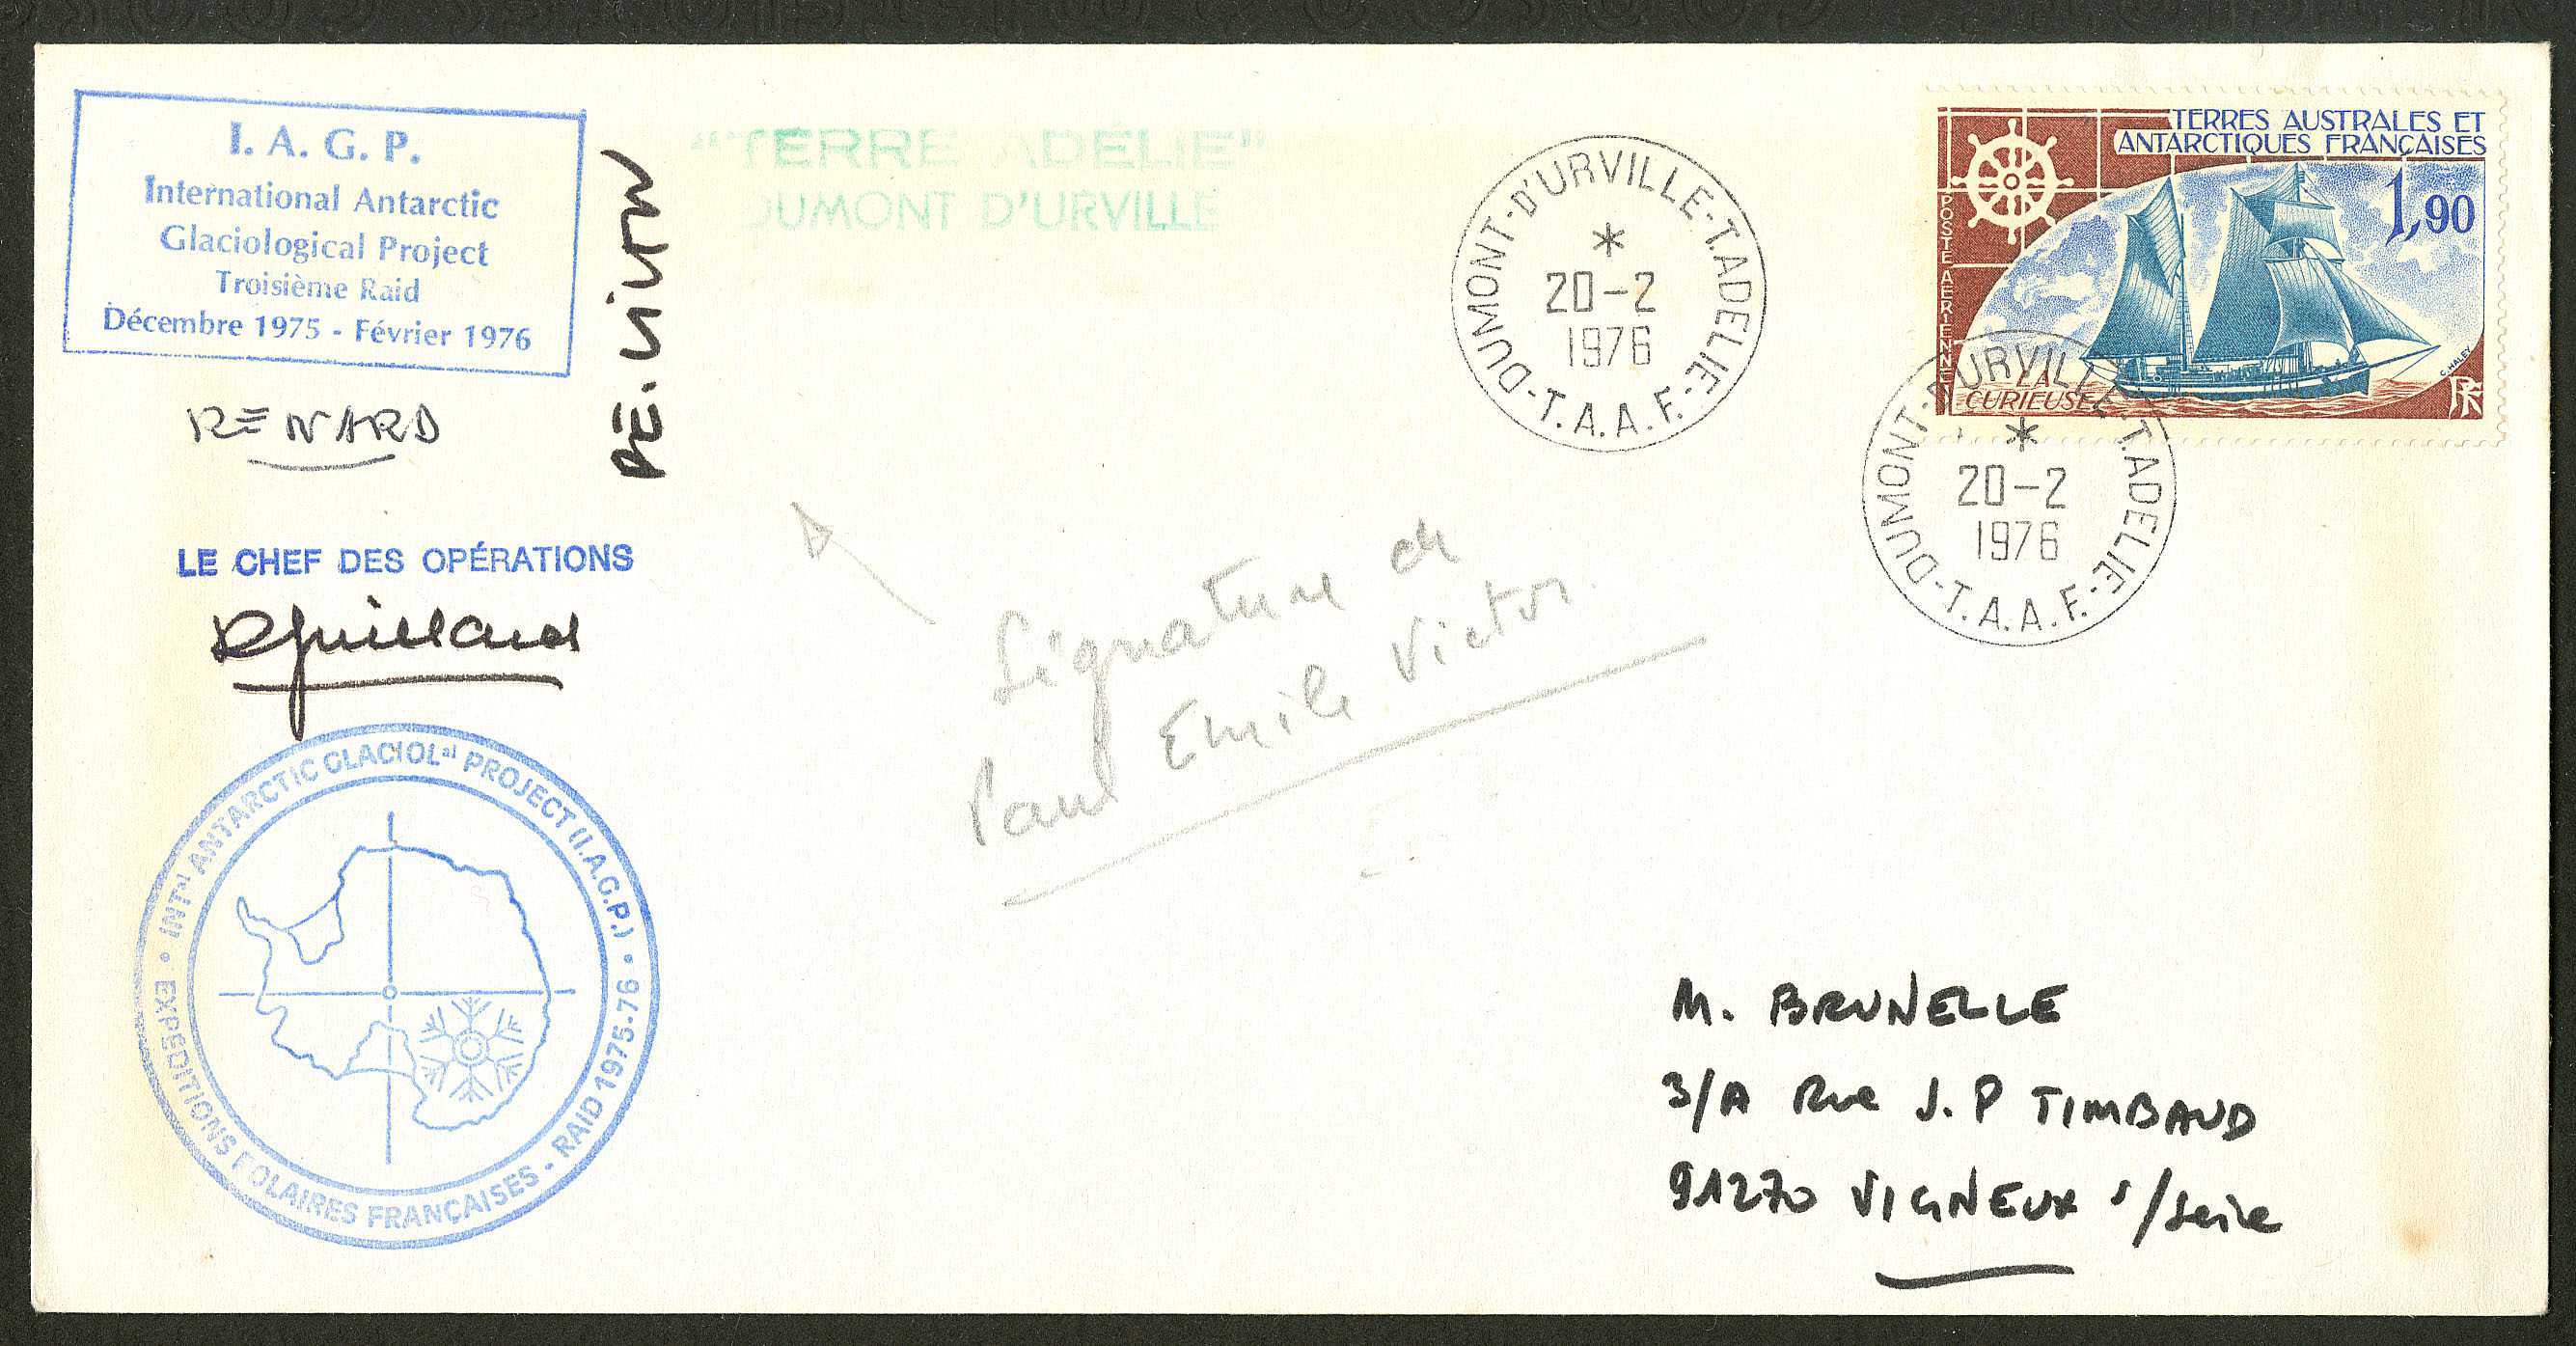 I. A. G. P.
International Antarctic
Glaciological Project
Troisième Raid
Décembre 1975 - Février 1976
RENARD
P.E. VICTOR
"TERRE ADÉLIE"
DUMONT D'URVILLE
DUMONT-D'URVILLE-T.ADELIE-T.A.A.F.
*
20-2
1976
TERRES AUSTRALES ET
ANTARCTIQUES FRANÇAISES
1,90
POSTE AERIENNE
LA
CURIEUSE
C. HALEY
RF
DUMONT-D'URVILLE-T.ADELIE-T.A.A.F.
*
20-2
1976
LE CHEF DES OPÉRATIONS
RGuillard
Signature de
Paul Emile Victor
• INTal ANTARCTIC GLACIOLal PROJECT (I.A.G.P.) •
EXPÉDITIONS POLAIRES FRANÇAISES - RAID 1975-76
M. BRUNELLE
3/A Rue J.P TIMBAUD
91270 VIGNEUX s/Seine